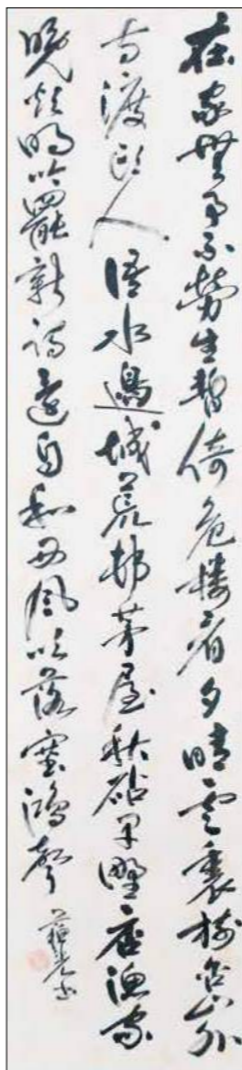 在家無事亦勞生暫倚危樓看夕晴雲裏樹含山外
寺渡頭人語水邊城荒村茅屋秋砧早野店漁家
晚炊明吟罷新詩還自和西風吹落塞鴻聲